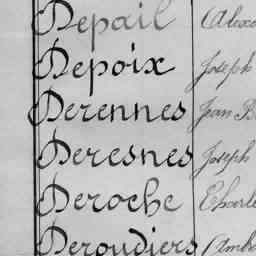 Depail Alexa
Depoix Joseph
Derennes Jean B
Deresnes Joseph
Deroche Charle
Deroudiers Ambr